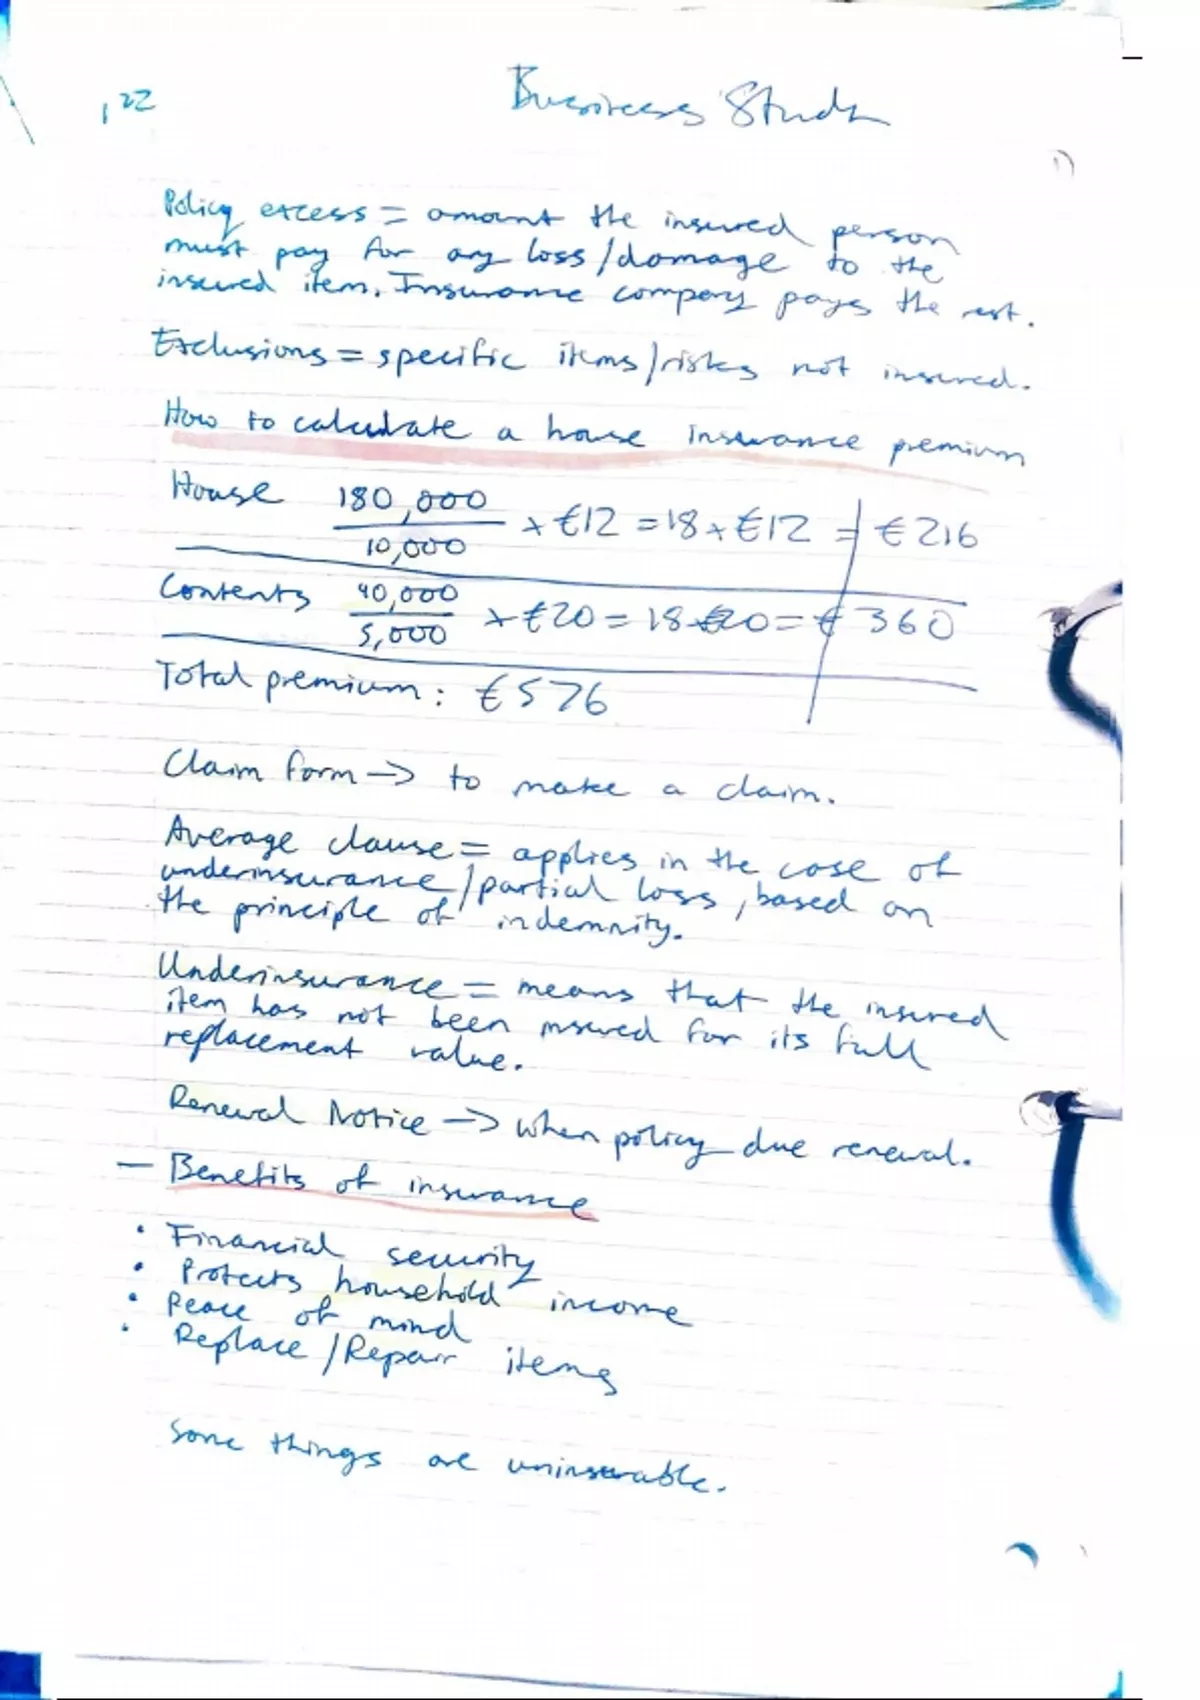 , 22
Business Study
1)
Policy excess = amount the insured person
must pay for any loss/damage to the
insured item. Insurance company pays the rest.
Exclusions = specific items/risks not insured.
How to calculate a house insurance premium
House 180,000 / 10,000 x €12 = 18 x €12 = €216
Contents 90,000 / 5,000 x €20 = 18 €20 = € 360
Total premium: €576
Claim form -> to make a claim.
Average clause = applies in the case of
underinsurance/partial loss, based on
the principle of indemnity.
Underinsurance = means that the insured
item has not been insured for its full
replacement value.
Renewal Notice -> when policy due renewal.
— Benefits of insurance
• Financial security
• Protects household income
• Peace of mind
• Replace / Repair items
Some things are uninsurable.